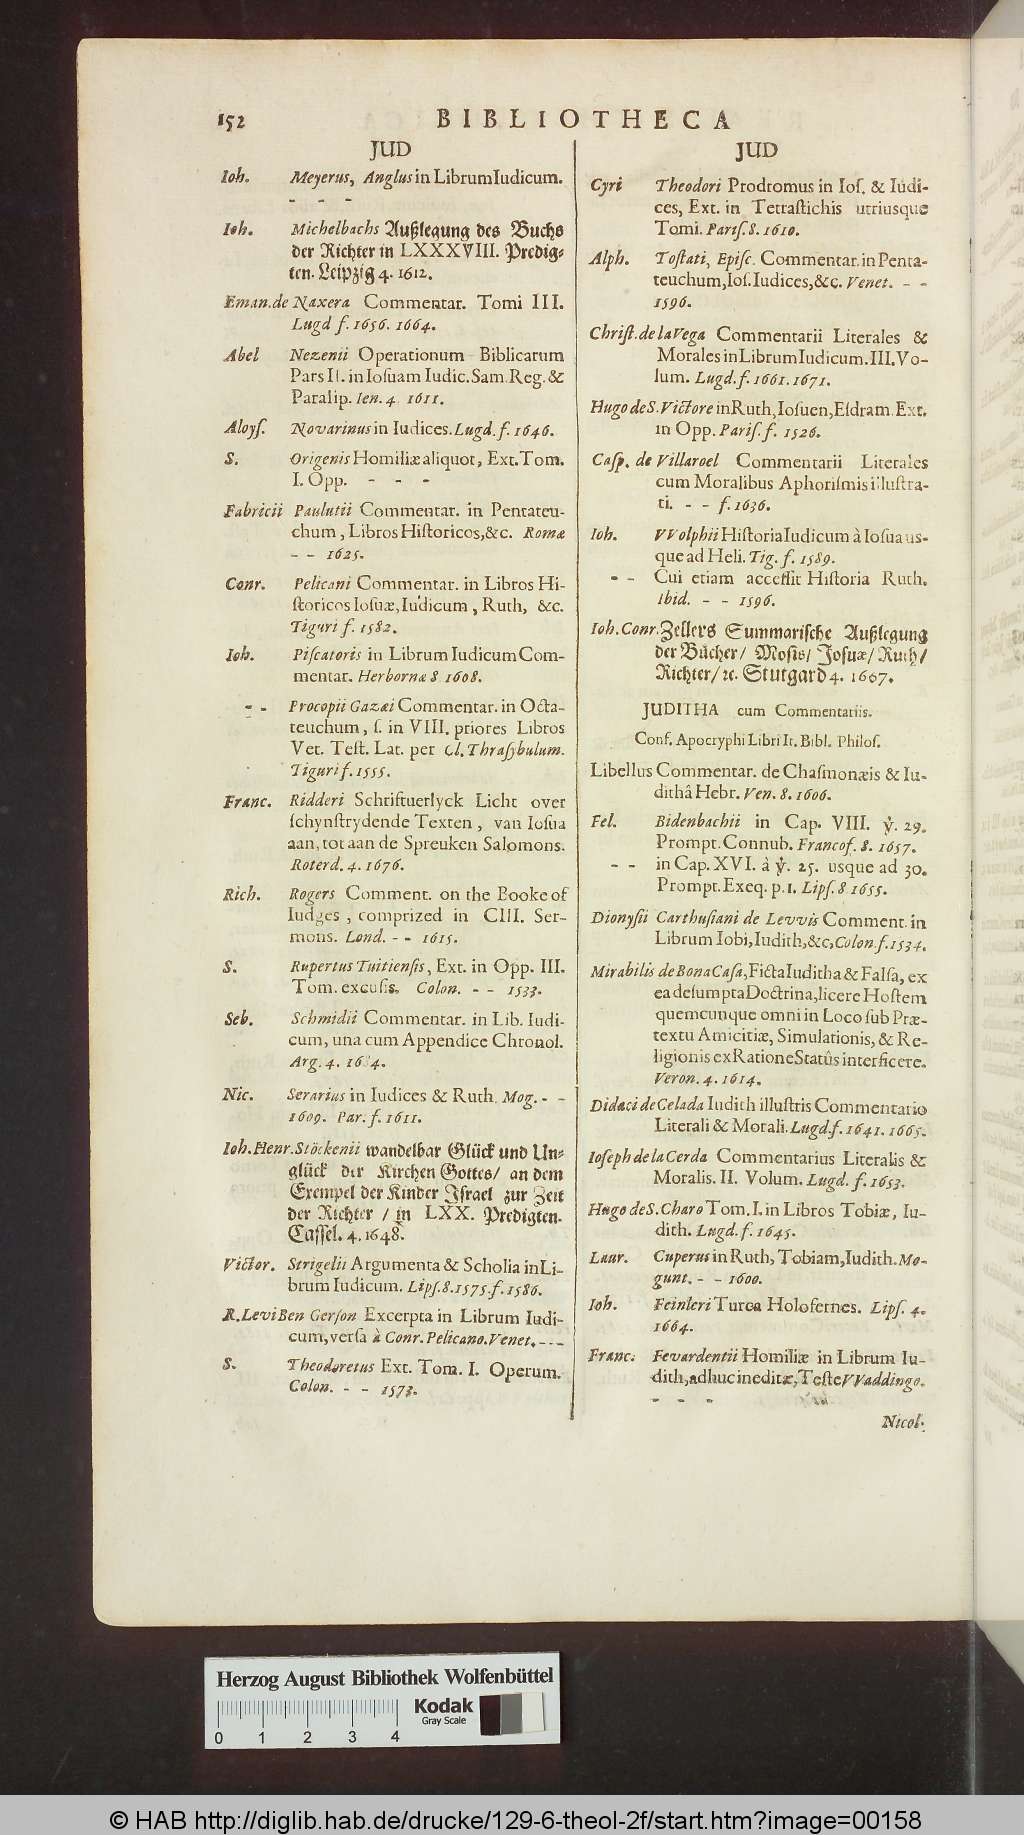 152
BIBLIOTHECA
JUD
Ioh. Meyerus, Anglus in Librum Iudicum.
- - -
Ioh. Michelbachs Außlegung des Buchs
der Richter in LXXXVIII. Predig-
ten. Leipzig 4. 1612.
Eman. de Naxera Commentar. Tomi III.
Lugd f. 1656. 1664.
Abel Nezenii Operationum Biblicarum
Pars II. in Iosuam Iudic. Sam. Reg. &
Paralip. Ien. 4. 1611.
Aloyſ. Novarinus in Iudices. Lugd. f. 1646.
S. Origenis Homiliæ aliquot, Ext. Tom.
I. Opp. - - -
Fabricii Paulutii Commentar. in Pentateu-
chum, Libros Hiſtoricos, &c. Romæ
- - 1625.
Conr. Pelicani Commentar. in Libros Hi-
ſtoricos Ioſuæ, Iudicum, Ruth, &c.
Tiguri f. 1582.
Ioh. Piſcatoris in Librum Iudicum Com-
mentar. Herbornæ 8 1608.
- - Procopii Gazæi Commentar. in Octa-
teuchum, ſ. in VIII. priores Libros
Vet. Teſt. Lat. per Cl. Thraſybulum.
Tiguri f. 1555.
Franc. Ridderi Schriftuerlyck Licht over
ſchynſtrydende Texten, van Ioſua
aan, tot aan de Spreuken Salomons.
Roterd. 4. 1676.
Rich. Rogers Comment. on the Booke of
Iudges, comprized in CIII. Ser-
mons. Lond. - - 1615.
S. Rupertus Tuitienſis, Ext. in Opp. III.
Tom. excuſis. Colon. - - 1533.
Seb. Schmidii Commentar. in Lib. Iudi-
cum, una cum Appendice Chronol.
Arg. 4.
Nic. Serarius in Iudices & Ruth. Mog. - -
1609. Par. f. 1611.
Ioh. Henr. Stöckenii wandelbar Glück und Un-
glück der Kirchen Gottes/ an dem
Exempel der Kinder Iſrael zur Zeit
der Richter / in LXX. Predigten.
Caſſel. 4. 1648.
Victor. Strigelii Argumenta & Scholia in Li-
brum Iudicum. Lipſ. 8. 1575. f. 1586.
R. Levi Ben Gerſon Excerpta in Librum Iudi-
cum, verſa à Conr. Pelicano. Venet. - - -
S. Theodoretus Ext. Tom. I. Operum.
Colon. - - 1573.
JUD
Cyri Theodori Prodromus in Ioſ. & Iudi-
ces, Ext. in Tetraſtichis utriusque
Tomi. Pariſ. 8. 1610.
Alph. Toſtati, Epiſc. Commentar. in Penta-
teuchum, Ioſ. Iudices, &c. Venet. - -
1596.
Chriſt. de la Vega Commentarii Literales &
Morales in Librum Iudicum. III. Vo-
lum. Lugd. f. 1661. 1671.
Hugo de S. Victore in Ruth, Ioſuen, Eſdram. Ext.
in Opp. Pariſ. f. 1526.
Caſp. de Villaroel Commentarii Literales
cum Moralibus Aphoriſmis illuſtra-
ti. - - f. 1636.
Ioh. VVolphii Hiſtoria Iudicum à Ioſua us-
que ad Heli. Tig. f. 1589.
- - Cui etiam acceſſit Hiſtoria Ruth.
Ibid. - - 1596.
Ioh. Conr. Zellers Summariſche Außlegung
der Bücher/ Moſis/ Joſuæ/ Ruth/
Richter/ ꝛc. Stutgard 4. 1667.
JUDITHA cum Commentariis.
Conf. Apocryphi Libri It. Bibl. Philoſ.
Libellus Commentar. de Chaſmonæis & Iu-
dithâ Hebr. Ven. 8. 1606.
Fel. Bidenbachii in Cap. VIII. ꝟ. 29.
Prompt. Connub. Francof. 8. 1657.
- - in Cap. XVI. à ꝟ. 25. usque ad 30.
Prompt. Exeq. p. 1. Lipſ. 8 1655.
Dionyſii Carthuſiani de Levvis Comment. in
Librum Iobi, Iudith, &c. Colon. f. 1534.
Mirabilis de Bona Caſa, Ficta Iuditha & Falſa, ex
ea deſumpta Doctrina, licere Hoſtem
quemcunque omni in Loco ſub Præ-
textu Amicitiæ, Simulationis, & Re-
ligionis ex Ratione Statûs interficere.
Veron. 4. 1614.
Didaci de Celada Iudith illuſtris Commentario
Literali & Morali. Lugd. f. 1641. 1665.
Ioſeph de la Cerda Commentarius Literalis &
Moralis. II. Volum. Lugd. f. 1653.
Hugo de S. Charo Tom. I. in Libros Tobiæ, Iu-
dith. Lugd. f. 1645.
Laur. Cuperus in Ruth, Tobiam, Iudith. Mo-
gunt. - - 1600.
Ioh. Feinleri Turca Holofernes. Lipſ. 4.
1664.
Franc. Fevardentii Homiliæ in Librum Iu-
dith, adhuc ineditæ, Teſte VVaddingo.
- - -
Nicol.
Herzog August Bibliothek Wolfenbüttel
Kodak
Gray Scale
0 1 2 3 4
© HAB http://diglib.hab.de/drucke/129-6-theol-2f/start.htm?image=00158